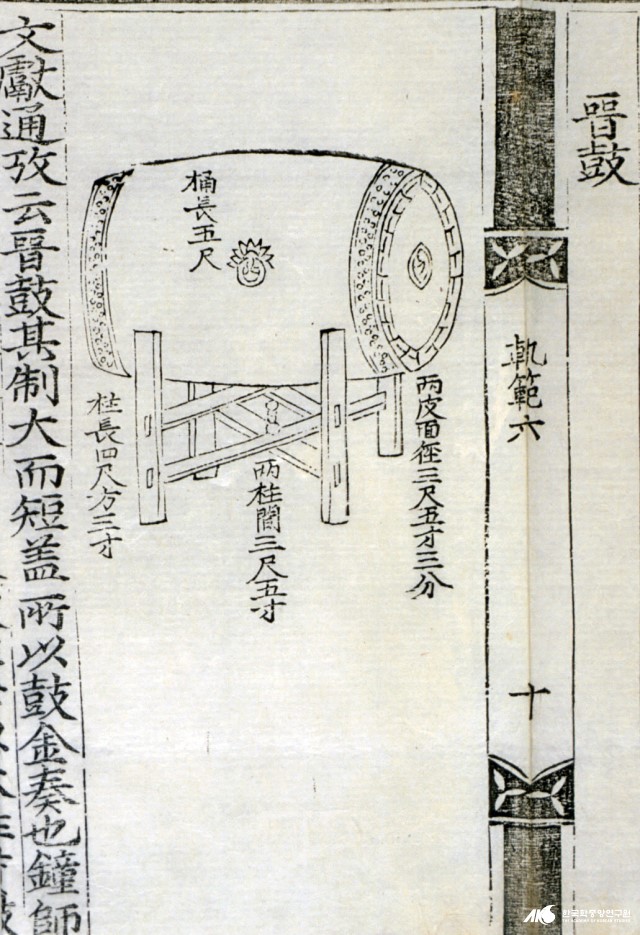 晉鼓
軌範六
十
桶長五尺
兩皮面徑三尺五寸三分
兩柱間三尺五寸
柱長四尺方三寸
文獻通攷云晉鼓其制大而短盖所以鼓金奏也鐘師
한국학중앙연구원
THE ACADEMY OF KOREAN STUDIES